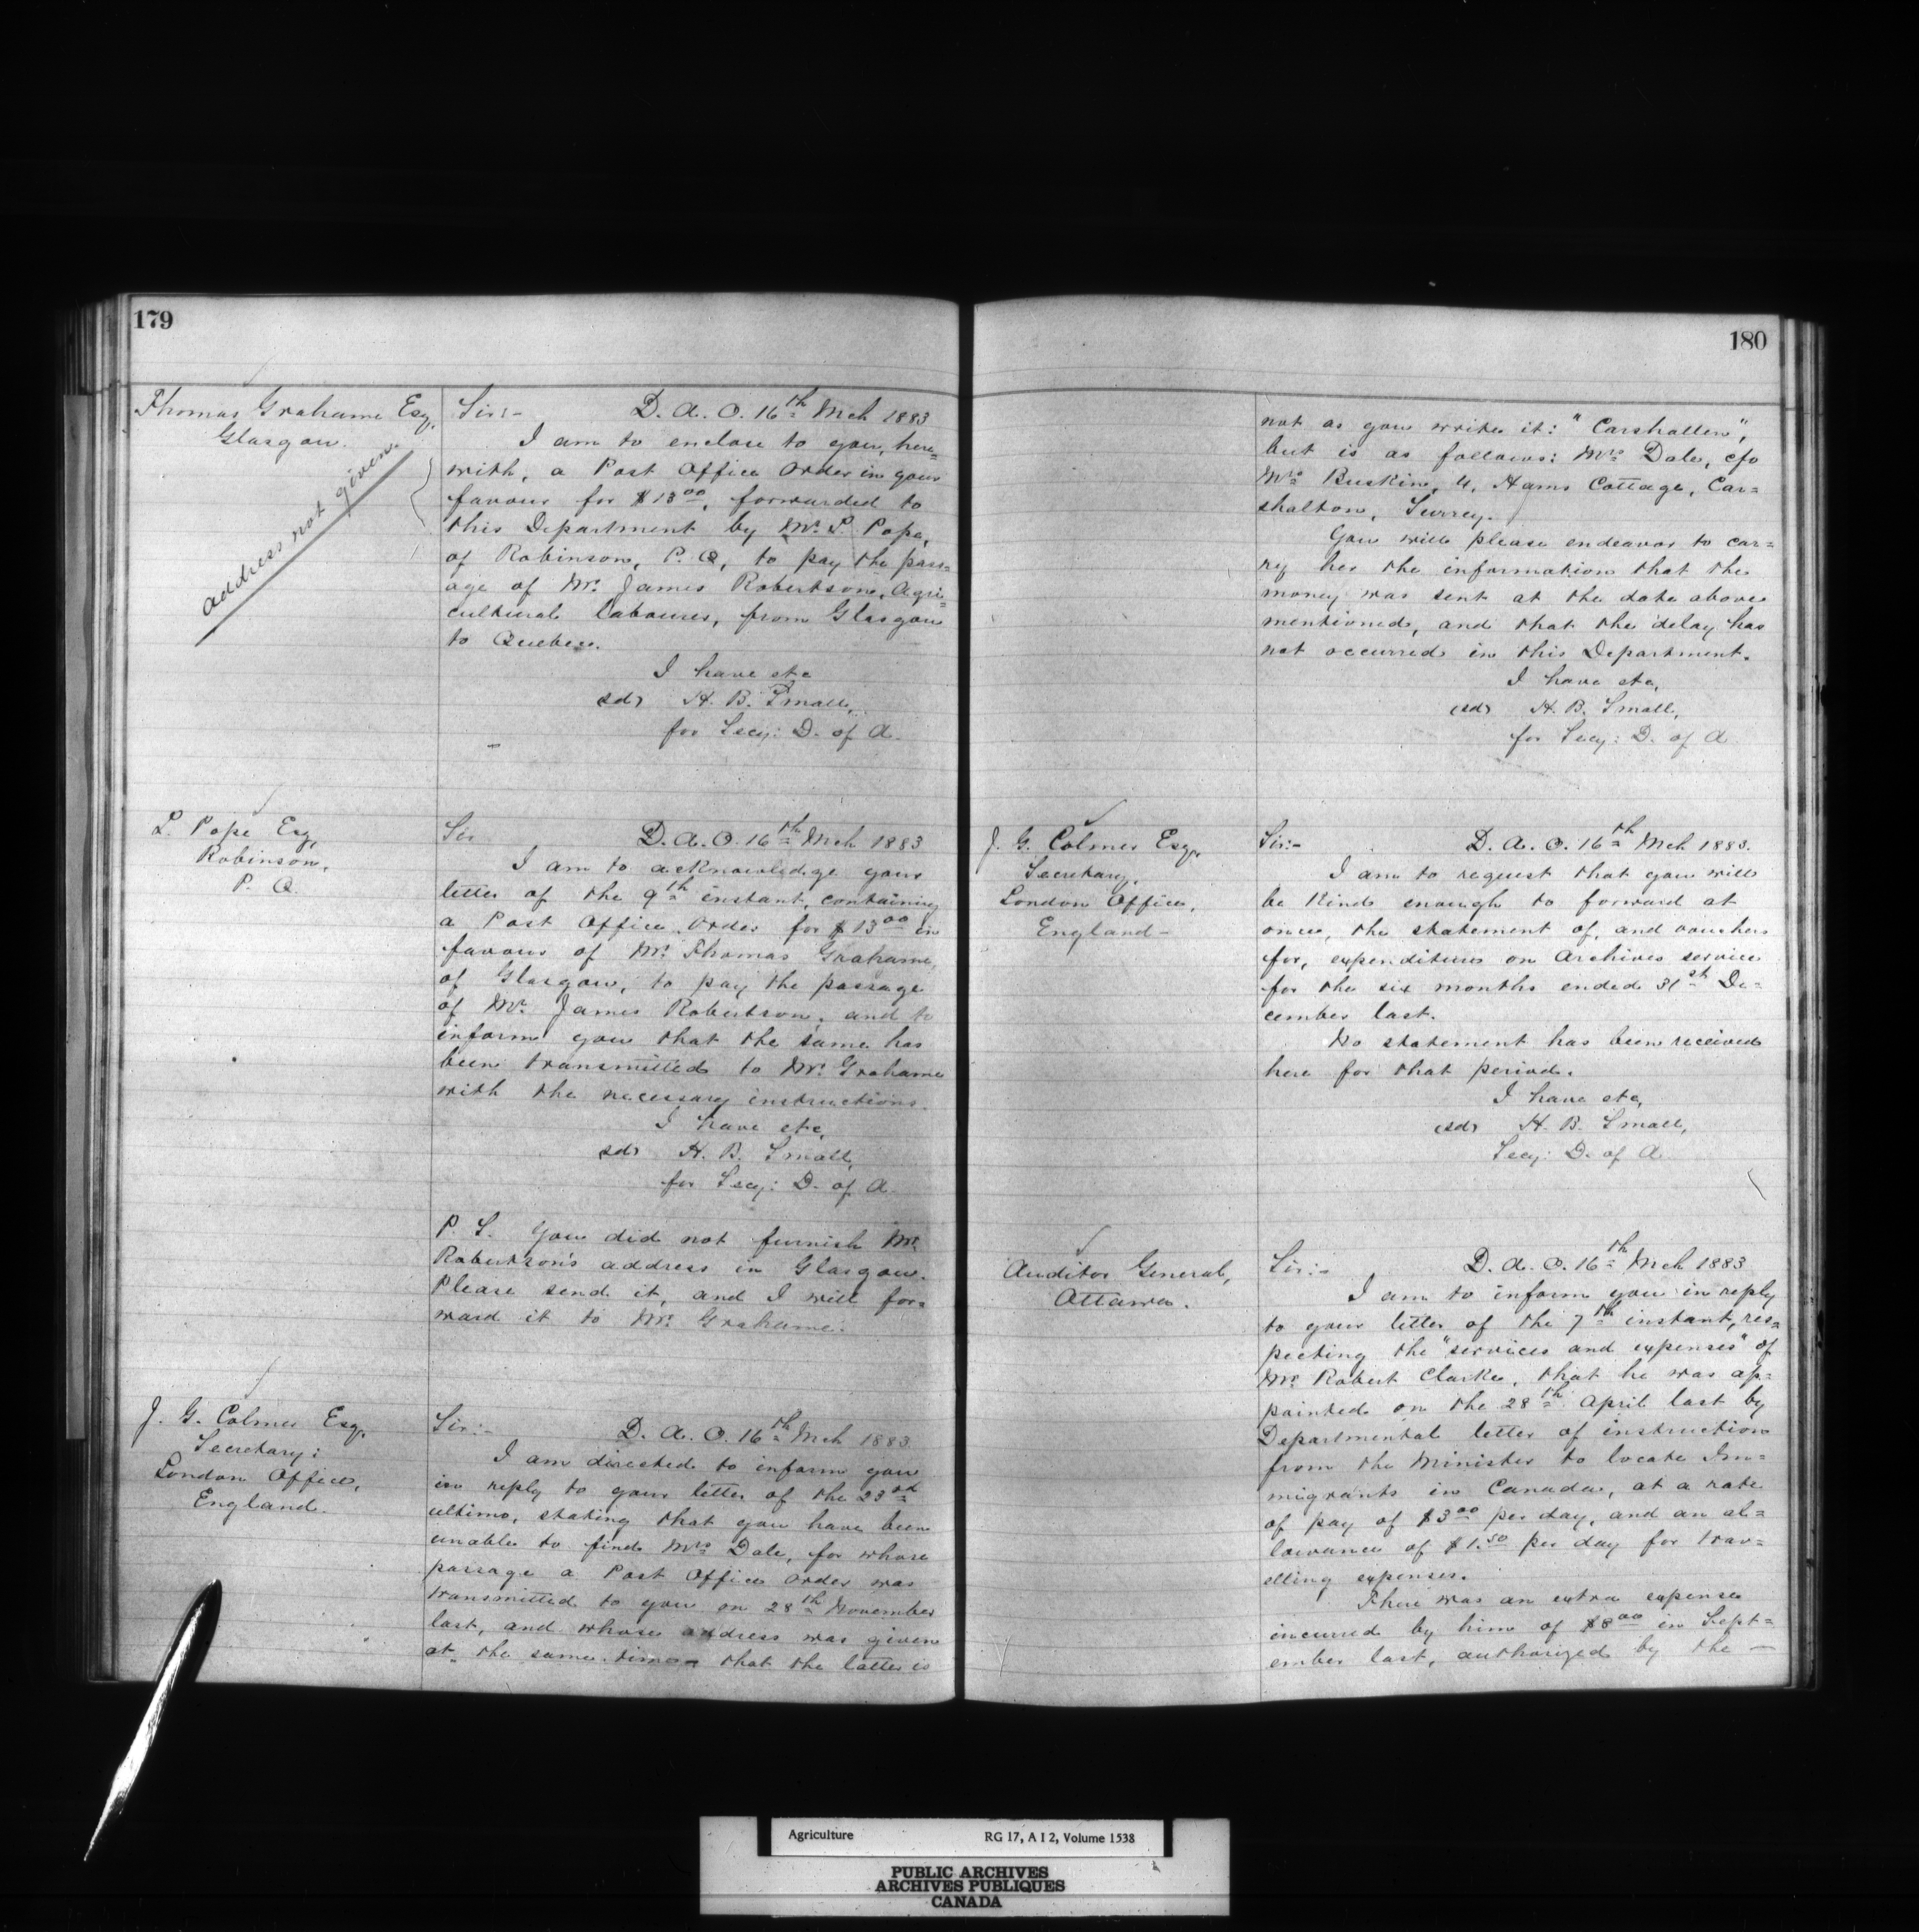 179
Thomas Grahame Esq,
Glasgow.
address not given.
Sir:- D. A. O. 16th Mch 1883
I am to enclose to you, here=
with, a Post Office Order in your
favour for $13.00, forwarded to
this Department by Mr. L. Pope,
of Robinson, P. Q, to pay the pass=
age of Mr. James Robertson, Agri=
cultural labourer, from Glasgow
to Quebec.
I have etc
(sd) H. B. Small,
for Secy: D. of A.
L. Pope Esq,
Robinson,
P. Q.
Sir D. A. O. 16th Mch 1883
I am to acknowledge your
letter of the 9th instant, containing
a Post Office Order for $13.00 in
favour of Mr. Thomas Grahame,
of Glasgow, to pay the passage
of Mr. James Robertson, and to
inform you that the same has
been transmitted to Mr. Grahame
with the necessary instructions.
I have etc,
(sd) H. B. Small,
for Secy: D. of A.
P. S. You did not furnish Mr.
Robertson's address in Glasgow.
Please send it, and I will for=
ward it to Mr. Grahame.
J. G. Colmer Esq,
Secretary:
London Office,
England.
Sir:- D. A. O. 16th Mch 1883
I am directed to inform you
in reply to your letter of the 23rd
ultimo, stating that you have been
unable to find Mrs Dale, for whose
passage a Post Office Order was
transmitted to you on 28th November
last, and whose address was given
at the same time - that the latter is
180
not as you write it: "Carshallen",
but is as follows: Mrs Dale, c/o
Mrs Buskin, 4, Hams Cottage, Car=
shalton, Surrey.
You will please endeavor to car=
ry her the information that the
money was sent at the date above
mentioned, and that the delay has
not occurred in this Department.
I have etc,
(sd) H. B. Small,
for Secy: D. of A
J. G. Colmer Esq,
Secretary,
London Office,
England-
Sir:- D. A. O. 16th Mch 1883.
I am to request that you will
be kind enough to forward at
once, the statement of, and vouchers
for, expenditure on Archives service
for the six months ended 31st De=
cember last.
No statement has been received
here for that period.
I have etc,
(sd) H. B. Small,
Secy: D. of A
Auditor General,
Ottawa.
Sir:- D. A. O. 16th Mch 1883
I am to inform you in reply
to your letter of the 7th instant, res=
pecting the "services and expenses" of
Mr Robert Clarke, that he was ap=
pointed on the 28th April last by
Departmental letter of instruction
from the Minister to locate Im=
migrants in Canada, at a rate
of pay of $3.00 per day, and an al=
lowance of $1.50 per day for trav=
elling expenses.
There was an extra expense
incurred by him of $8.00 in Sept=
ember last, authorized by the -
Agriculture RG 17, A I 2, Volume 1538
PUBLIC ARCHIVES
ARCHIVES PUBLIQUES
CANADA